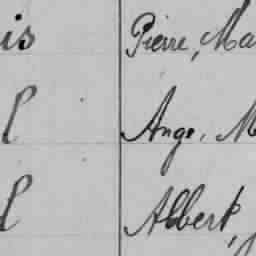 is Pierre, Ma
l Ange, M
l Albert,